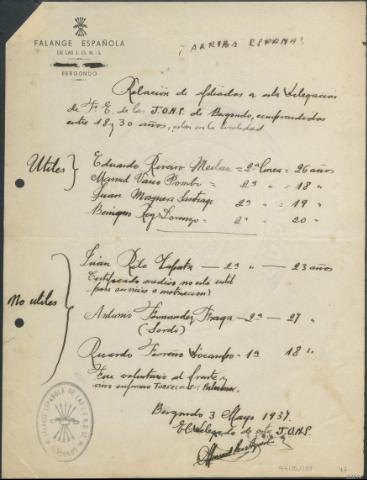 FALANGE ESPAÑOLA
DE LAS J. O. N. S.
BERGONDO
¡ARRIBA ESPAÑA!
Relación de afiliados a esta Delegación
de F. E. de las J.O.N.S. de Bergondo, comprendidos
entre 18 y 30 años, en la localidad
Utiles
Eduardo = 2ª Linea = 26 años
Manuel = 2ª " = 18 "
Juan Mosquera Santiago = 2ª " = 19 "
Rey Lorenzo = 2ª " 20 "
No utiles
Juan Zapata — 2ª " — 23 años
Certificado medico no esta util
para servicios e instruccion)
Antonio Fernandez Fraga — 2ª — 27 "
(Sordo)
Ricardo — 1ª 18 "
Fue voluntario al frente y
vino enfermo
Bergondo 3 Mayo 1937.
El Delegado de esta J.O.N.S.
FALANGE ESPAÑOLA DE LAS J.O.N.S.